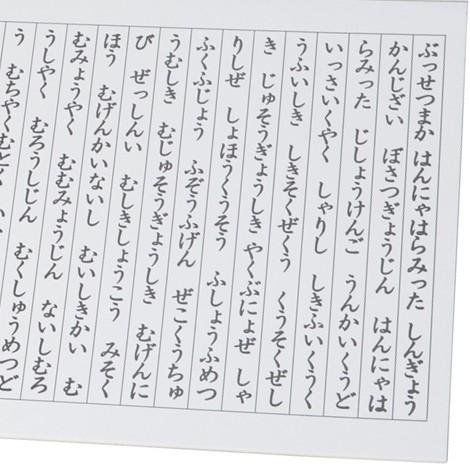 ぶっせつまか はんにゃはらみった しんぎょう
かんじざい ぼさつぎょうじん はんにゃは
らみった じしょうけんご うんかいくうど
いっさいくやく しゃりし しきふいくうく
うふいしき しきそくぜくう くうそくぜし
き じゅそうぎょうしき やくぶにょぜ しゃ
りしぜ しょほうくうそう ふしょうふめつ
ふくふじょう ふぞうふげん ぜこくうちゅ
うむしき むじゅそうぎょうしき むげんに
び ぜっしんい むしきしょうこう みそく
ほう むげんかいないし むいしきかい む
むみょうやく むむみょうじん ないしむろ
うしやく むろうしじん むくしゅうめつど
う むちやくむと